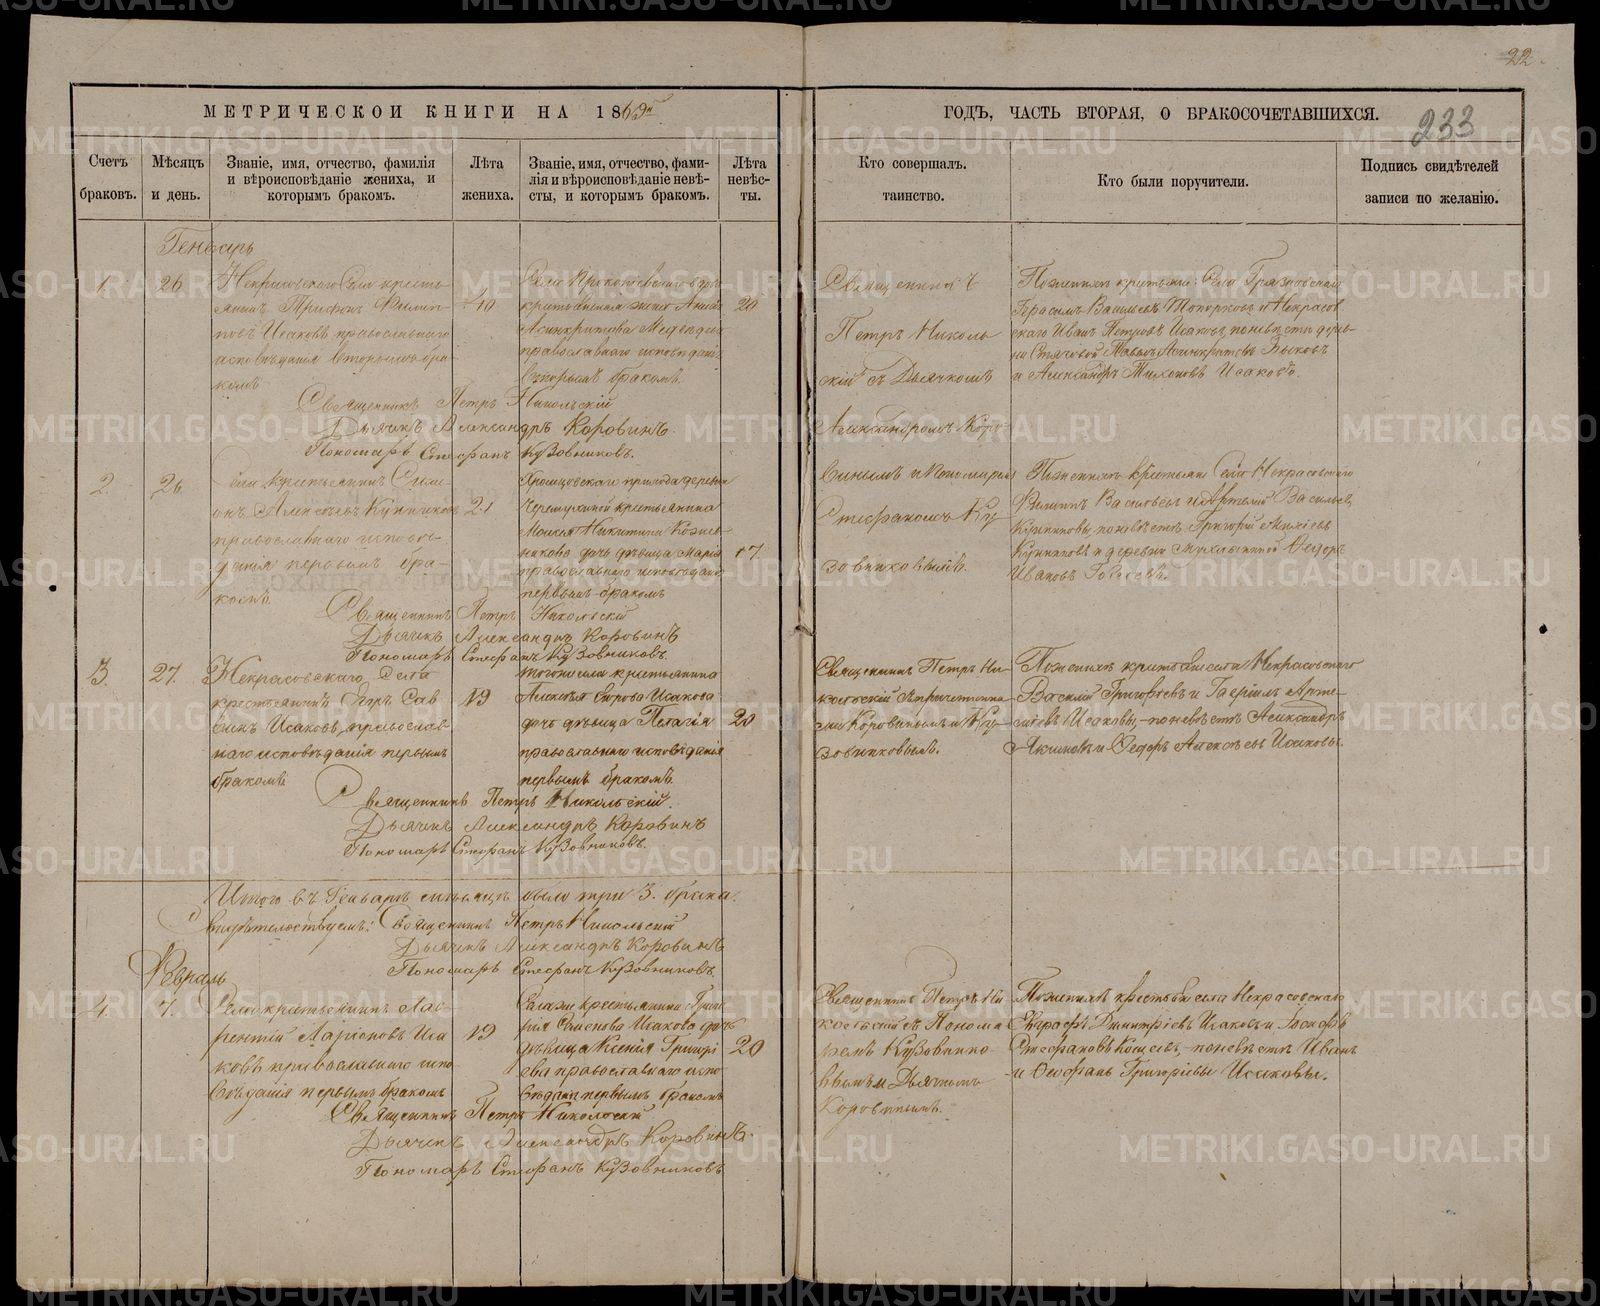 22.
МЕТРИЧЕСКОИ КНИГИ НА 1869й
ГОДЪ, ЧАСТЬ ВТОРАЯ, О БРАКОСОЧЕТАВШИХСЯ.
233
Счетъ браковъ.
Мѣсяцъ и день.
Званіе, имя, отчество, фамилія
и вѣроисповѣданіе жениха, и
которымъ бракомъ.
Лѣта
жениха.
Званіе, имя, отчество, фами-
лія и вѣроисповѣданіе невѣ-
сты, и которымъ бракомъ.
Лѣта
невѣс-
ты.
Кто совершалъ
таинство.
Кто были поручители.
Подпись свидѣтелей
записи по желанію.
Генварь
1.
26
Некрасовскаго Села кресть-
янинъ Трифонъ Филип-
повъ Исаковъ православнаго
исповѣданія вторымъ бра-
комъ
40
православнаго исповѣданія
вторымъ бракомъ.
20
Священникъ
Петръ Николь
скій съ Дьячкомъ
Александромъ Коро-
винымъ и Пономаремъ
Стефаномъ Ку
зовниковымъ.
Герасимъ Васильевъ Топорковъ и Некрасов
скаго Иванъ Петровъ Исаковъ, по невѣстѣ дерев-
и Александръ Тихоновъ Исаковъ.
Священникъ Петръ Никольскій
Дьячекъ Александръ Коровинъ.
Пономарь Стефанъ Кузовниковъ.
2.
26
крестьянинъ Симе-
онъ Алексѣевъ
православнаго исповѣ-
данія первымъ бра-
комъ.
21
прихода деревни
крестьянина
Моисея Никитина
дочь дѣвица Марія
православнаго исповѣданія
первымъ бракомъ
17.
По женихѣ крестьяне Села Некрасовскаго
Филиппъ Васильевъ и Артемій Васильевъ
по невѣстѣ Григорій
и деревни Ѳедоръ
Ивановъ
Священникъ Петръ Никольскій
Дьячекъ Александръ Коровинъ
Пономарь Стефанъ Кузовниковъ.
3.
27.
Некрасовскаго Села
крестьянинъ Егоръ Сав
винъ Исаковъ, православ-
наго исповѣданія первымъ
бракомъ
19
Того же села крестьянина
Исакова
дочь дѣвица Пелагія
православнаго исповѣданія
первымъ бракомъ.
20
Священникъ Петръ Ни-
кольскій съ причетника-
ми Коровинымъ и Ку-
зовниковымъ.
По женихѣ крестьяне села Некрасовскаго
Василій Григорьевъ и Гавріилъ Арте-
мьевъ Исаковы, - по невѣстѣ Александръ
Акимовъ и Ѳедоръ Алексѣевъ Исаковы.
Священникъ Петръ Никольскій.
Дьячекъ Александръ Коровинъ
Пономарь Стефанъ Кузовниковъ.
Итого въ Генварѣ мѣсяцѣ было три 3. брака.
Свидѣтельствуемъ: Священникъ Петръ Никольскій
Дьячекъ Александръ Коровинъ
Пономарь Стефанъ Кузовниковъ.
Февраль
4.
7.
Села крестьянинъ Лав-
рентій Ларіоновъ Иса
ковъ православнаго испо
вѣданія первымъ бракомъ
19
крестьянина Григо
рія Семенова Исакова дочь
дѣвица Ксенія Григорі
ева православнаго испо
вѣданія первымъ бракомъ
20
Священникъ Петръ Ни
кольскій съ Понома
ремъ Кузовнико
вымъ и Дьячкомъ
Коровинымъ.
По женихѣ крестьяне села Некрасовскаго
Евграфъ Димитріевъ Исаковъ и Іосифъ
Стефановъ Кощеевъ, - по невѣстѣ Иванъ
и Ѳеофанъ Григорьевы Исаковы.
Священникъ Петръ Никольскій
Дьячекъ Александръ Коровинъ.
Пономарь Стефанъ Кузовниковъ
METRIKI.GASO-URAL.RU